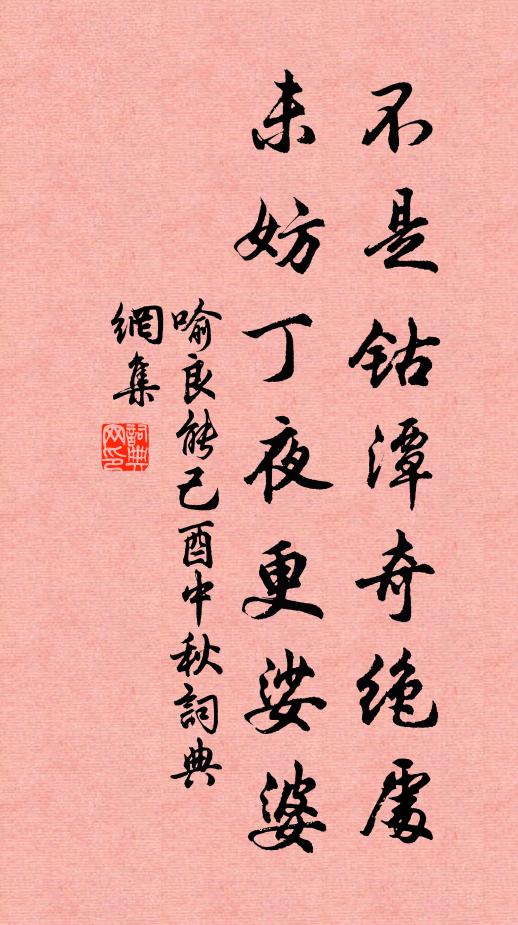 不是钴潭奇绝處
未妨丁夜更娑婆
喻良能己酉中秋詞典
網集
詞典网印